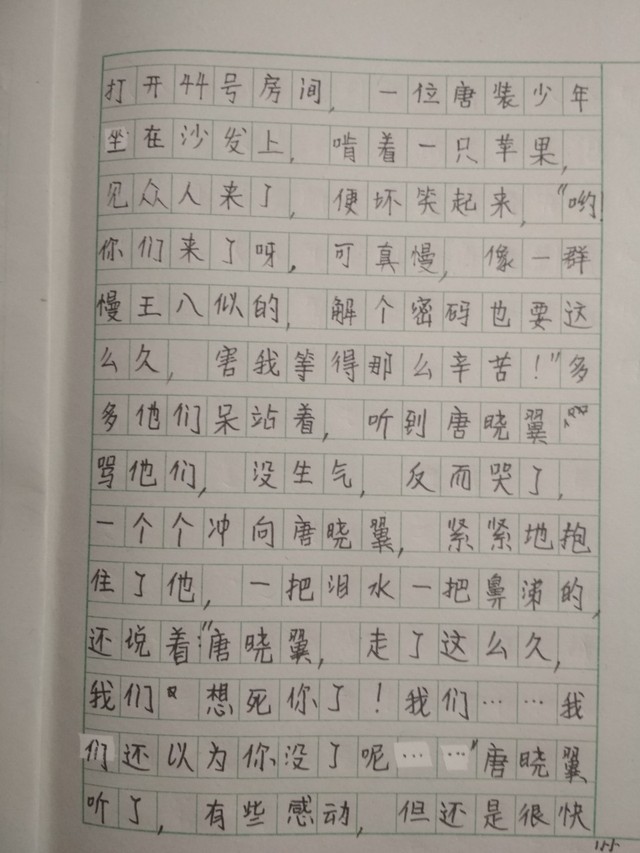 打开44号房间，一位唐装少年
坐在沙发上，啃着一只苹果，
见众人来了，便坏笑起来，“哟！
你们来了呀。可真慢，像一群
慢王八似的，解个密码也要这
么久，害我等得那么辛苦！”多
多他们呆站着，听到唐晓翼
骂他们，没生气，反而哭了，
一个个冲向唐晓翼，紧紧地抱
住了他，一把泪水一把鼻涕的，
还说着：“唐晓翼，走了这么久，
我们想死你了！我们……我
们还以为你没了呢……”唐晓翼
听了，有些感动，但还是很快
155